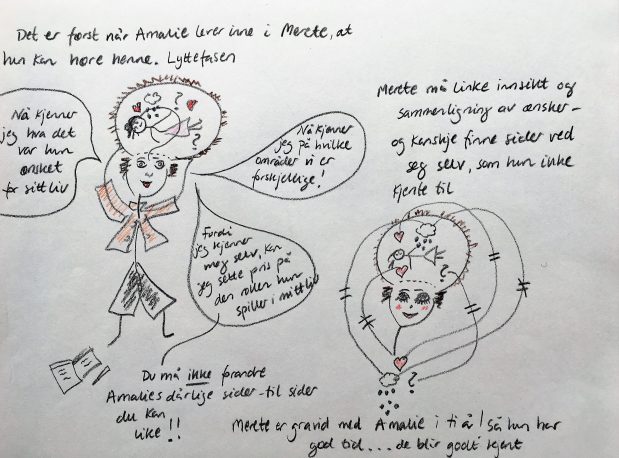 Det er først når Amalie lever inne i Merete, at
hun kan høre henne. Lyttefasen
Nå kjenner
jeg hva det
var hun
ønsket
for sitt liv
Nå kjenner
jeg på hvilke
områder vi er
forskjellige!
Fordi
jeg kjenner
meg selv, kan
jeg sette pris på
den rollen hun
spiller i mitt liv
Merete må linke innsikt og
sammerligning av ønsker -
og kanskje finne sider ved
seg selv, som hun ikke
kjente til
Du må ikke forandre
Amalies dårlige sider - til sider
du kan
like!!
Merete er gravid med Amalie i ti år! Så hun har
god tid... de blir godt kjent